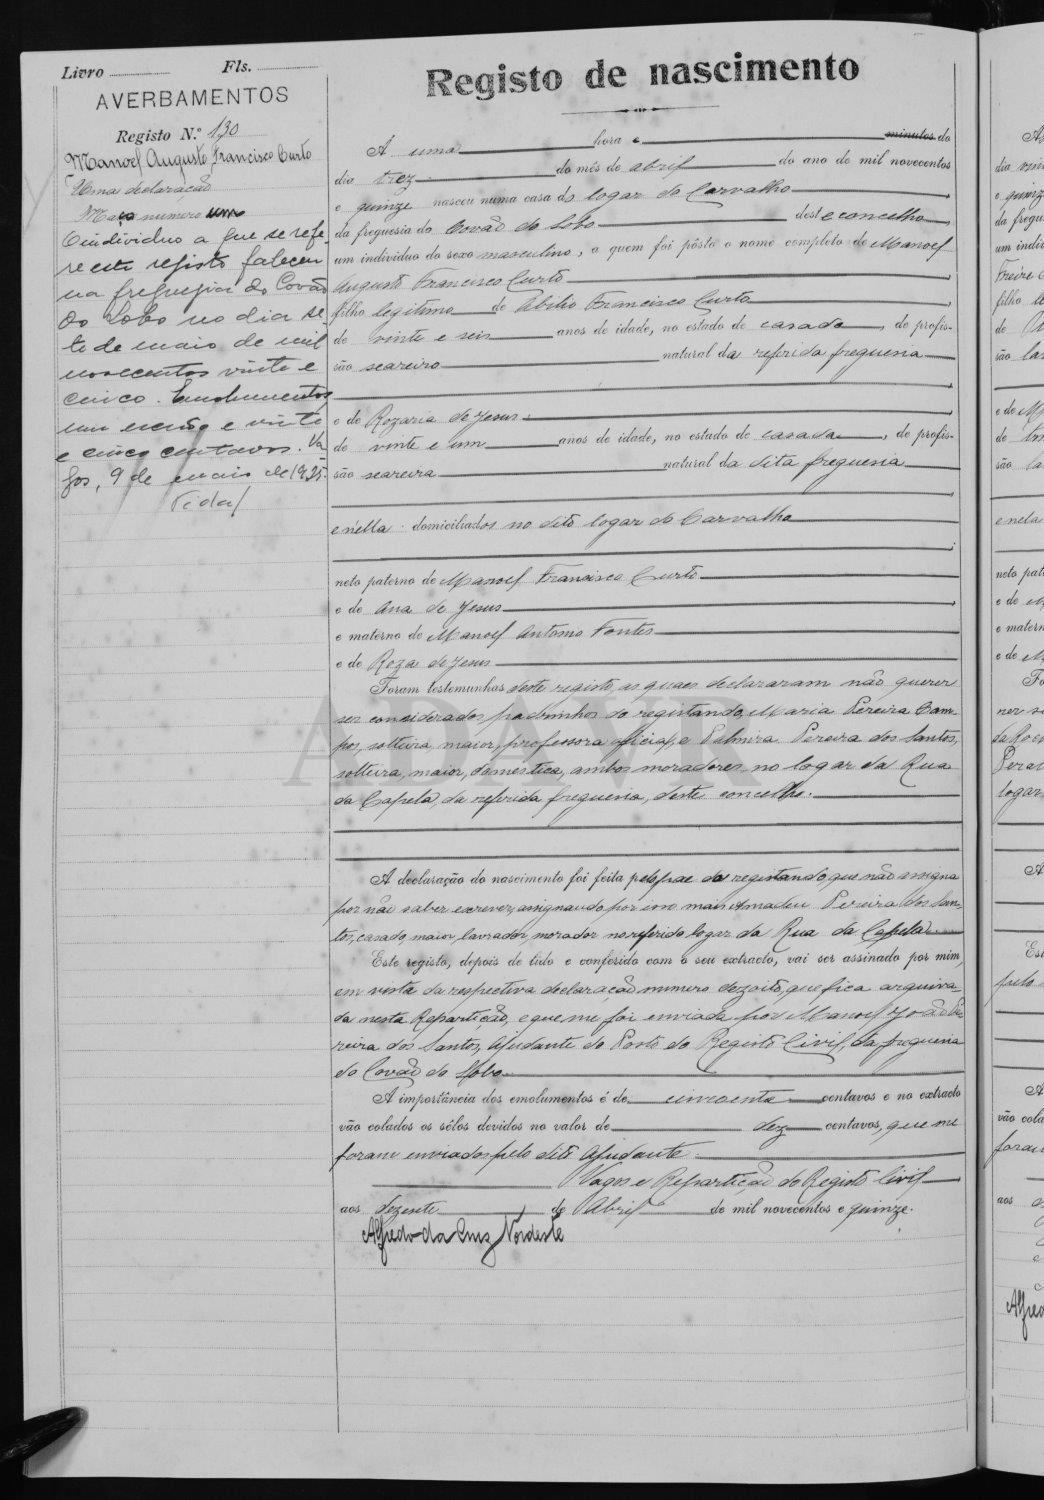 Livro Fls.
AVERBAMENTOS
Registo N.º 130
Manoel Augusto Francisco Curto
Uma declaração
Maço numero um
O individuo a que se refe-
re este registo faleceu
na freguesia do Covão
do Lobo no dia se-
te de maio de mil
novecentos vinte e
cinco. Emolumentos
um escudo e vinte
e cinco centavos. Va-
gos, 9 de maio de 1925.
Vidal
Registo de nascimento
Á uma hora e minutos do
dia trez do mês de abril do ano de mil novecentos
e quinze nasceu numa casa do logar do Carvalho
da freguesia do Covão do Lobo deste concelho,
um individuo do sexo masculino, a quem foi pôsto o nome completo de Manoel
Augusto Francisco Curto
filho legitimo de Abilio Francisco Curto
de vinte e seis anos de idade, no estado de casado, de profis-
são seareiro natural da referida freguesia
e de Rozaria de Jesus
de vinte e um anos de idade, no estado de casada, de profis-
são seareira natural da dita freguesia
e nella domiciliados no dito logar do Carvalho
neto paterno de Manoel Francisco Curto
e de Ana de Jesus
e materno de Manoel Antonio Fontes
e de Roza de Jesus
Foram testemunhas deste registo, as quaes declararam não querer
ser considerados padrinhos do registando, Maria Pereira Cam-
pos, solteira, maior, professora oficial, e Palmira Pereira dos Santos,
solteira, maior, domestica, ambos moradores no logar da Rua
da Capela, da referida freguesia, deste concelho.
A declaração do nascimento foi feita pelo pae do registando, que não assigna
por não saber escrever, assignando por imo mais Amadeu Pereira dos San-
tos, casado, maior, lavrador, morador no referido logar da Rua da Capela
Este registo, depois de lido e conferido com o seu extracto, vai ser assinado por mim,
em vista da respectiva declaração numero dezoito, que fica arquiva-
da nesta Repartição, e que me foi enviada por Manoel João Pe-
reira dos Santos, Ajudante do Posto do Registo Civil, da freguesia
do Covão do Lobo
A importância dos emolumentos é de cincoenta centavos e no extracto
vão colados os sêlos devidos no valor de dez centavos, que me
foram enviados pelo dito Ajudante.
Vagos e Repartição do Registo Civil
aos dezesete de Abril de mil novecentos e quinze.
Alfredo da Cruz Nordeste
ADAV